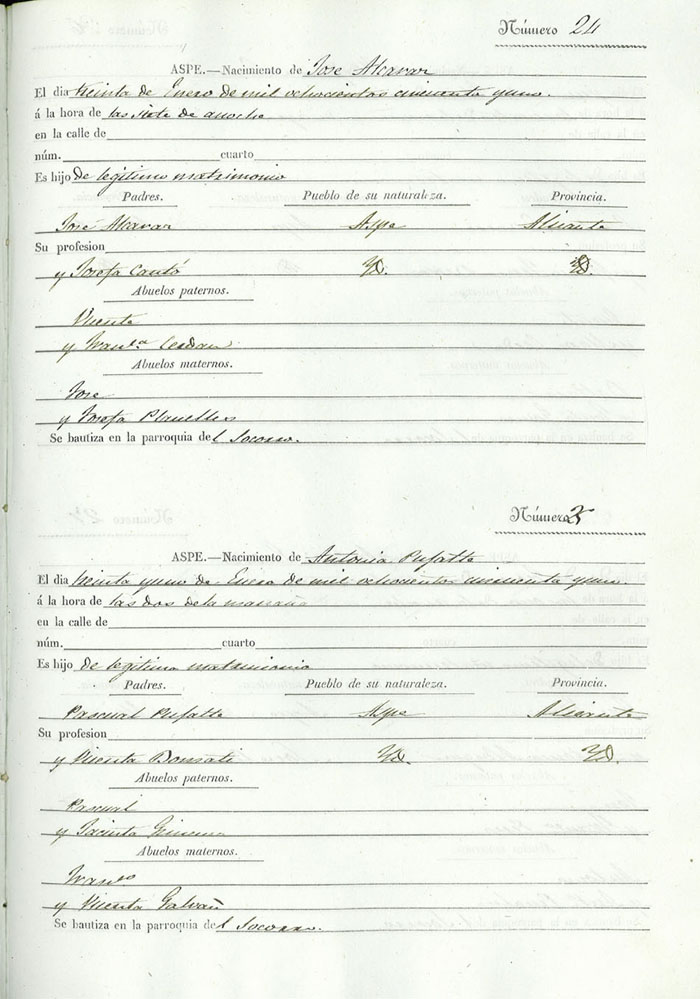 Número 24
ASPE.—Nacimiento de Jose Alcaraz
El dia treinta de Enero de mil ochocientos cincuenta y uno.
á la hora de las siete de anoche
en la calle de
núm. cuarto
Es hijo de legitimo matrimonio
Padres. Pueblo de su naturaleza. Provincia.
José Alcaraz Aspe Alicante
Su profesion
y Josefa Cantó Yd. Yd.
Abuelos paternos.
Vicente
y Franca Cerdan
Abuelos maternos.
Jose
y Josefa Planelles
Se bautiza en la parroquia del Socorro.
Número 25
ASPE.—Nacimiento de Antonia Pujalte
El dia treinta y uno de Enero de mil ochocientos cincuenta y uno.
á la hora de las dos de la mañana
en la calle de
núm. cuarto
Es hijo de legitimo matrimonio
Padres. Pueblo de su naturaleza. Provincia.
Pascual Pujalte Aspe Alicante
Su profesion
y Vicenta Yd. Yd.
Abuelos paternos.
Pascual
y Jacinta Gimenez
Abuelos maternos.
Franco
y Vicenta Galvañ
Se bautiza en la parroquia del Socorro.